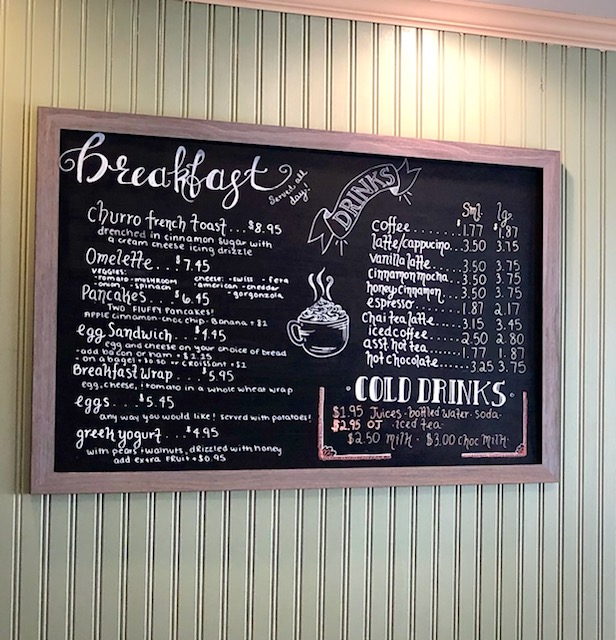 Breakfast
Served all
day!
Churro french toast...$8.95
drenched in cinnamon sugar with
a cream cheese icing drizzle
Omelette....$7.45
veggies:
-tomato -mushroom
-onion -spinach
cheese: -swiss -feta
-american -cheddar
-gorgonzola
Pancakes....$6.45
TWO FLUFFY PANCAKES!
APPLE CINNAMON-choc chip-Banana +$2
egg Sandwich...$4.45
egg and cheese on your choice of bread
-add bacon or ham +$2.25
-on a bagel +$0.50 or CROISSANT +$1
Breakfast Wrap...$5.95
egg, cheese, + tomato in a whole wheat wrap
eggs...$5.45
any way you would like! served with potatoes!
greek yogurt...$4.95
with pears + walnuts, drizzled with honey
add extra FRUIT +$0.95
DRINKS
Sml. lg.
Coffee.........$1.77 $1.87
latte/cappucino...3.50 3.75
vanilla latte......3.50 3.75
cinnamon mocha...3.50 3.75
honey cinnamon....3.50 3.75
espresso.........1.87 2.17
chai tea latte.....3.15 3.45
iced coffee.......2.50 2.80
asst. hot tea......1.77 1.87
hot chocolate.....3.25 3.75
·COLD DRINKS·
$1.95 Juices·bottled water·soda·
$2.95 OJ ·iced tea·
$2.50 milk· $3.00 choc milk·